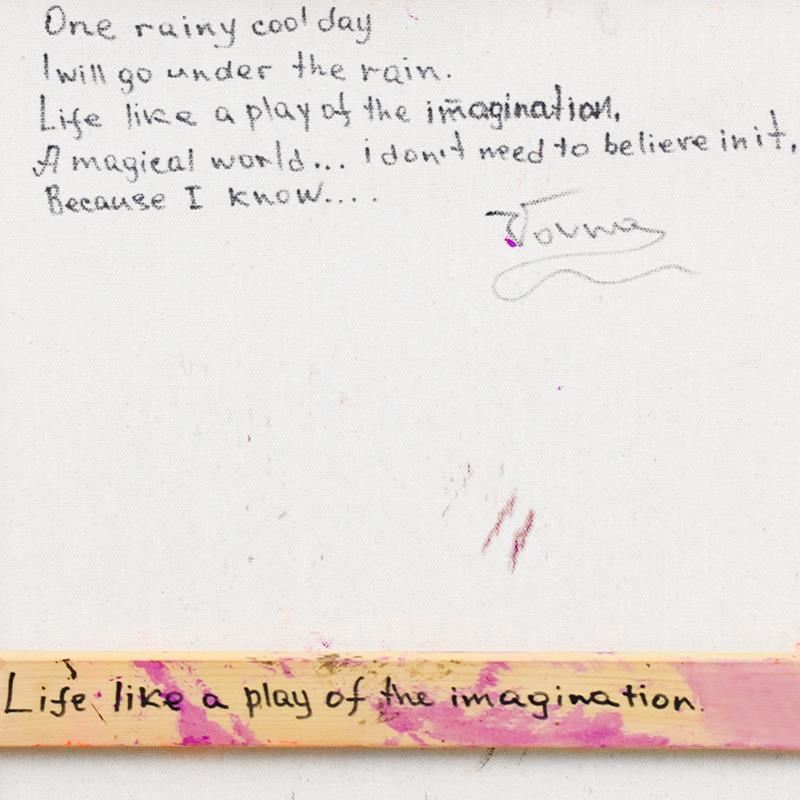 One rainy cool day
I will go under the rain.
Life like a play of the imagination.
A magical world... i don't need to believe in it.
Because I know....
Life like a play of the imagination.